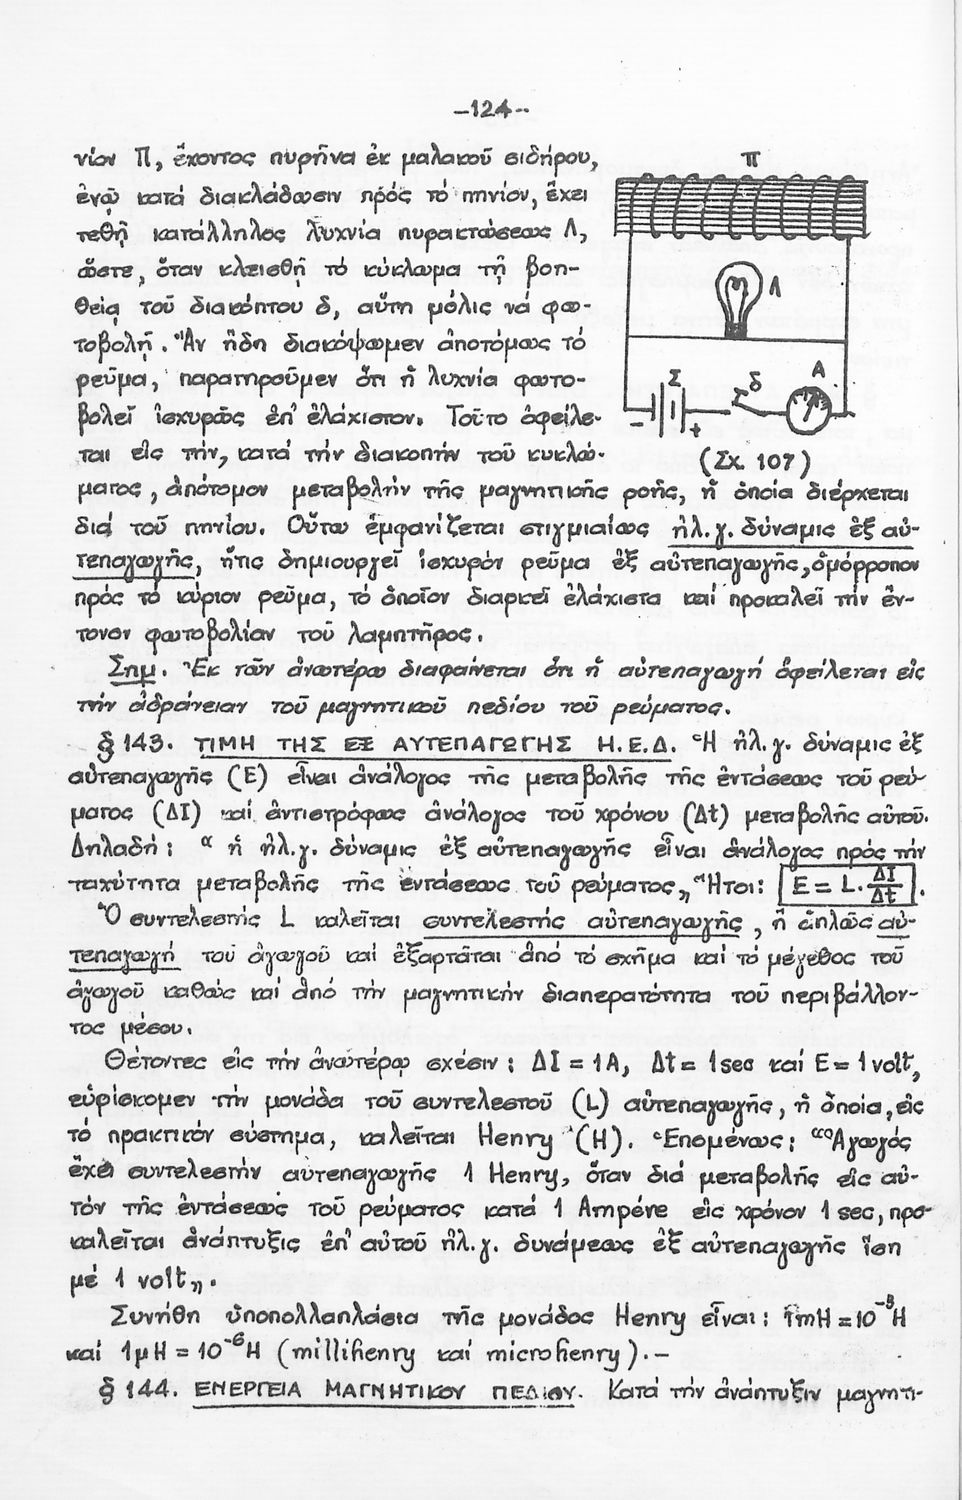 -124-
νίον Π, ἔχοντος πυρῆνα ἐκ μαλακοῦ σιδήρου,
ἐνῷ κατά διακλάδωσιν πρός τό πηνίον, ἔχει
τεθῆ κατάλληλος λυχνία πυρακτώσεως Λ,
ὥστε, ὅταν κλεισθῆ τό κύκλωμα τῇ βοη-
θείᾳ τοῦ διακόπτου δ, αὕτη μόλις νά φω-
τοβολῇ. Ἄν ἤδη διακόψωμεν ἀποτόμως τό
ρεῦμα, παρατηροῦμεν ὅτι ἡ λυχνία φωτο-
βολεῖ ἰσχυρῶς ἐπ' ἐλάχιστον. Τοῦτο ὀφείλε-
ται εἰς τήν, κατά τήν διακοπήν τοῦ κυκλώ-
ματος, ἀπότομον μεταβολήν τῆς μαγνητικῆς ροῆς, ἡ ὁποία διέρχεται
διά τοῦ πηνίου. Οὕτω ἐμφανίζεται στιγμιαίως ἠλ.γ. δύναμις ἐξ αὐ-
τεπαγωγῆς, ἥτις δημιουργεῖ ἰσχυρόν ρεῦμα ἐξ αὐτεπαγωγῆς, ὁμόρροπον
πρός τό κύριον ρεῦμα, τό ὁποῖον διαρκεῖ ἐλάχιστα καί προκαλεῖ τήν ἔν-
τονον φωτοβολίαν τοῦ λαμπτῆρος.
Σημ. Ἐκ τῶν ἀνωτέρω διαφαίνεται ὅτι ἡ αὐτεπαγωγή ὀφείλεται εἰς
τήν ἀδράνειαν τοῦ μαγνητικοῦ πεδίου τοῦ ρεύματος.
§ 143. ΤΙΜΗ ΤΗΣ ΕΞ ΑΥΤΕΠΑΓΩΓΗΣ Η.Ε.Δ. Ἡ ἠλ.γ. δύναμις ἐξ
αὐτεπαγωγῆς (Ε) εἶναι ἀνάλογος τῆς μεταβολῆς τῆς ἐντάσεως τοῦ ρεύ-
ματος (ΔΙ) καί ἀντιστρόφως ἀνάλογος τοῦ χρόνου (Δt) μεταβολῆς αὐτοῦ.
Δηλαδή: "ἡ ἠλ.γ. δύναμις ἐξ αὐτεπαγωγῆς εἶναι ἀνάλογος πρός τήν
ταχύτητα μεταβολῆς τῆς ἐντάσεως τοῦ ρεύματος„ Ἤτοι: E = L·ΔI/Δt.
Ὁ συντελεστής L καλεῖται συντελεστής αὐτεπαγωγῆς, ἤ ἁπλῶς αὐ-
τεπαγωγή τοῦ ἀγωγοῦ καί ἐξαρτᾶται ἀπό τό σχῆμα καί τό μέγεθος τοῦ
ἀγωγοῦ καθώς καί ἀπό τήν μαγνητικήν διαπερατότητα τοῦ περιβάλλον-
τος μέσου.
Θέτοντες εἰς τήν ἀνωτέρω σχέσιν: ΔI = 1A, Δt = 1sec καί E = 1volt,
εὑρίσκομεν τήν μονάδα τοῦ συντελεστοῦ (L) αὐτεπαγωγῆς, ἡ ὁποία, εἰς
τό πρακτικόν σύστημα, καλεῖται Henry (H). Ἑπομένως: "Ἀγωγός
ἔχει συντελεστήν αὐτεπαγωγῆς 1 Henry, ὅταν διά μεταβολῆς εἰς αὐ-
τόν τῆς ἐντάσεως τοῦ ρεύματος κατά 1 Ampére εἰς χρόνον 1 sec, προ-
καλεῖται ἀνάπτυξις ἐπ' αὐτοῦ ἠλ.γ. δυνάμεως ἐξ αὐτεπαγωγῆς ἴση
μέ 1 volt„.
Συνήθη ὑποπολλαπλάσια τῆς μονάδος Henry εἶναι: 1mH = 10⁻³H
καί 1μH = 10⁻⁶H (millihenry καί microhenry).-
§ 144. ΕΝΕΡΓΕΙΑ ΜΑΓΝΗΤΙΚΟΥ ΠΕΔΙΟΥ. Κατά τήν ἀνάπτυξιν μαγνητι-
Π
Λ
Σ
δ
Α
- +
(Σχ. 107)